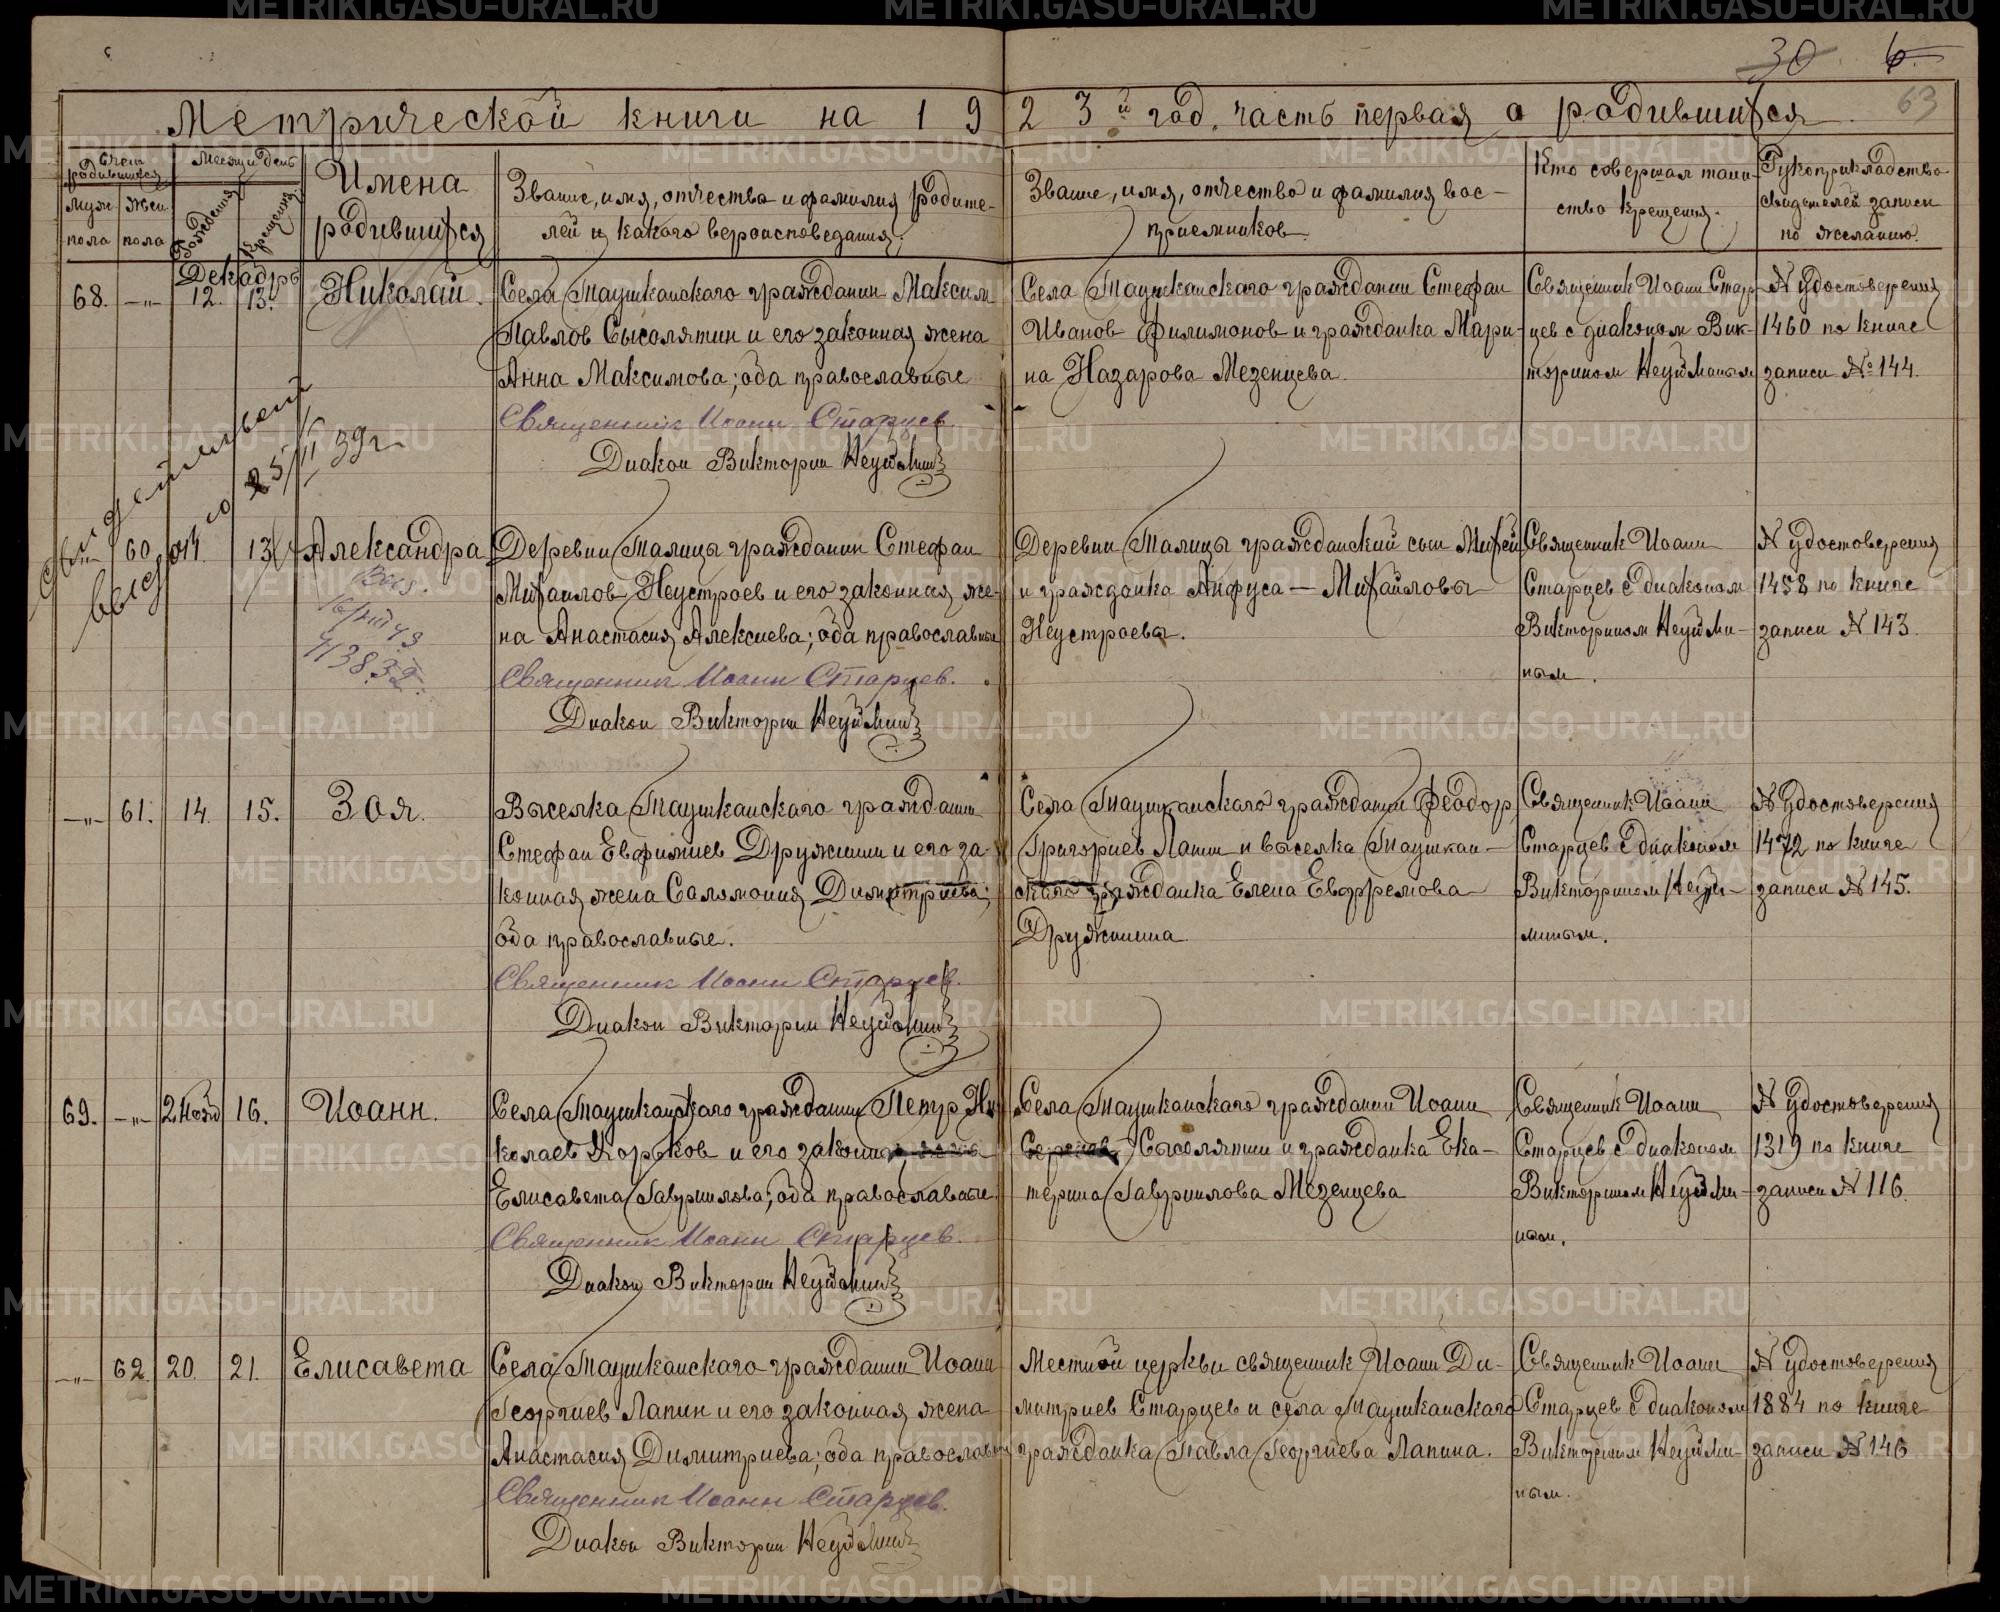 30 6
63
Метрической книги на 1923й год, часть первая о родившихся.
Счет родившихся
Месяц и день
Муж пола
Жен пола
Рождения
Крещения
Имена родившихся
Звание, имя, отчество и фамилия родите-
лей и какого вероисповедания.
Звание, имя, отчество и фамилия вос-
приемников.
Кто совершал таин-
ство крещения.
Рукоприкладство
свидетелей записи
по желанию.
Декабрь
68. —„— 12. 13. Николай.
Села Таушканского гражданин Максим
Павлов Сысолятин и его законная жена
Анна Максимова; оба православные
Священник Иоанн Старцев.
Диакон Викторин Неуймин
Села Таушканского гражданин Стефан
Иванов Филимонов и гражданка Мари-
на Назарова Мезенцева.
Священник Иоанн Стар-
цев с диаконом Вик-
торином Неуйминым
№ удостоверения
1460 по книге
записи № 144.
25/II 39 г
60 13 Александра
43832.
Деревни Талицы гражданин Стефан
Михаилов Неустроев и его законная же-
на Анастасия Алексиева; оба православные
Священник Иоанн Старцев.
Диакон Викторин Неуймин
Деревни Талицы гражданский сын
и гражданка Анфуса — Михайловы
Неустроевы.
Священник Иоанн
Старцев с диаконом
Викторином Неуйми-
ным.
№ удостоверения
1458 по книге
записи № 143.
—„— 61. 14. 15. Зоя.
Выселка Таушканского гражданин
Стефан Евфимиев Дружинин и его за-
конная жена Саломония Димитриева;
оба православные.
Священник Иоанн Старцев.
Диакон Викторин Неуймин
Села Таушканского гражданин Феодор
Григориев Лапин и выселка Таушкан-
скаго гражданка Елена Евфремова
Дружинина
Священник Иоанн
Старцев с диаконом
Викторином Неуй-
миным.
№ удостоверения
1472 по книге
записи № 145.
69. —„— 2 нояб 16. Иоанн.
Села Таушканскаго гражданин Петр Ни-
колаев Хорьков и его законная жена
Елисавета Гавриилова; оба православные
Священник Иоанн Старцев.
Диакон Викторин Неуймин
Села Таушканскаго гражданин Иоанн
Сысолятин и гражданка Ека-
терина Гавриилова Мезенцева
Священник Иоанн
Старцев с диаконом
Викторином Неуйми-
ным.
№ удостоверения
1319 по книге
записи № 116.
—„— 62. 20. 21. Елисавета
Села Таушканскаго гражданин Иоанн
Георгиев Лапин и его законная жена
Анастасия Димитриева; оба православные
Священник Иоанн Старцев.
Диакон Викторин Неуймин
Местной церкви священник Иоанн Ди-
митриев Старцев и села Таушканскаго
гражданка Павла Георгиева Лапина.
Священник Иоанн
Старцев с диаконом
Викторином Неуйми-
ным.
№ удостоверения
1884 по книге
записи № 146
METRIKI.GASO-URAL.RU